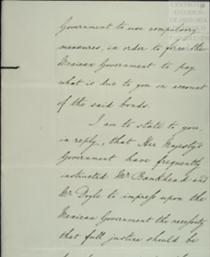 Government to use compulsory
measures, in order to force the
Mexican Government to pay
what is due to you on account
of the said bonds.
I am to state to you,
in reply, that Her Majesty's
Government have frequently
instructed Mr Bankhead and
Mr Doyle to impress upon the
Mexican Government the necessity
that full justice should be